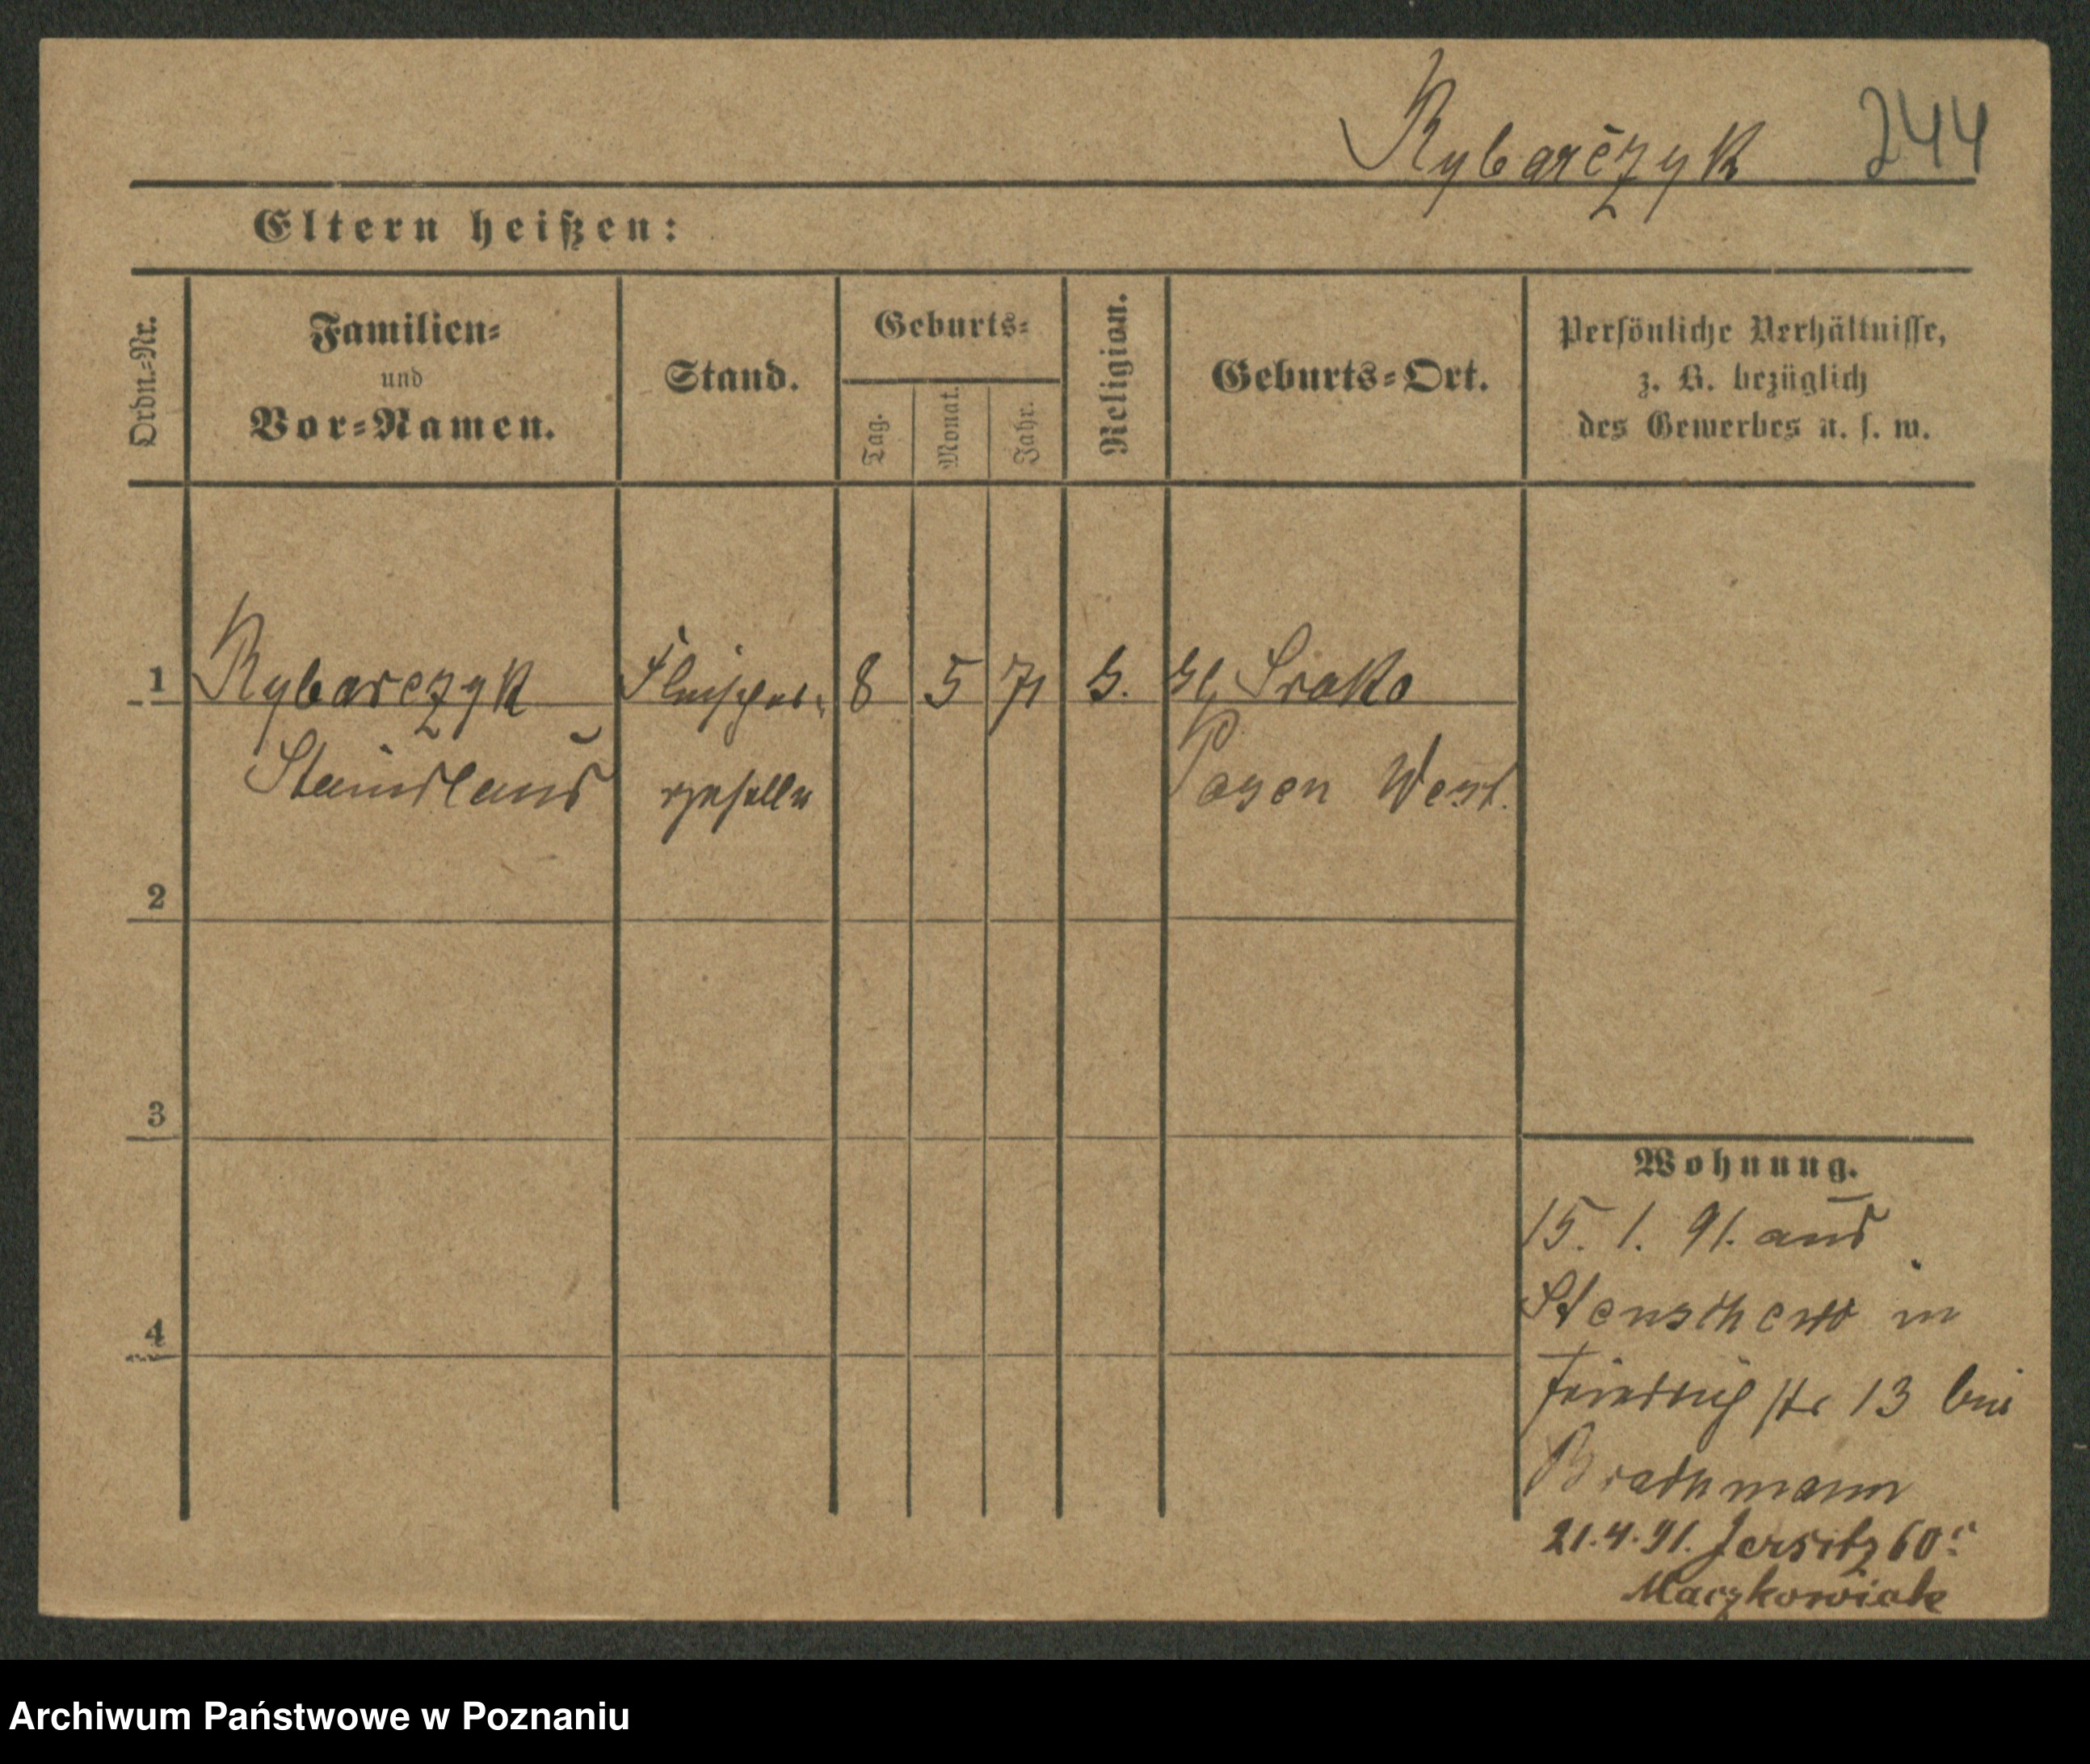 Rybarczyk 244
Eltern heißen:
Ordn.-Nr.
Familien-
und
Vor-Namen.
Stand.
Geburts-
Tag.
Monat.
Jahr.
Religion.
Geburts-Ort.
Persönliche Verhältnisse,
z. B. bezüglich
des Gewerbes u. s. w.
1 Rybarczyk Fleischer- 8 5 71 Sroko
Stanislaus geselle Posen West.
2
3
4
Wohnung.
15. 1. 91. aus
Stenschewo in
Friedrichstr 13 bei
Brathmann
21.4.91. Jersitz 60
Maczkowiak
Archiwum Państwowe w Poznaniu